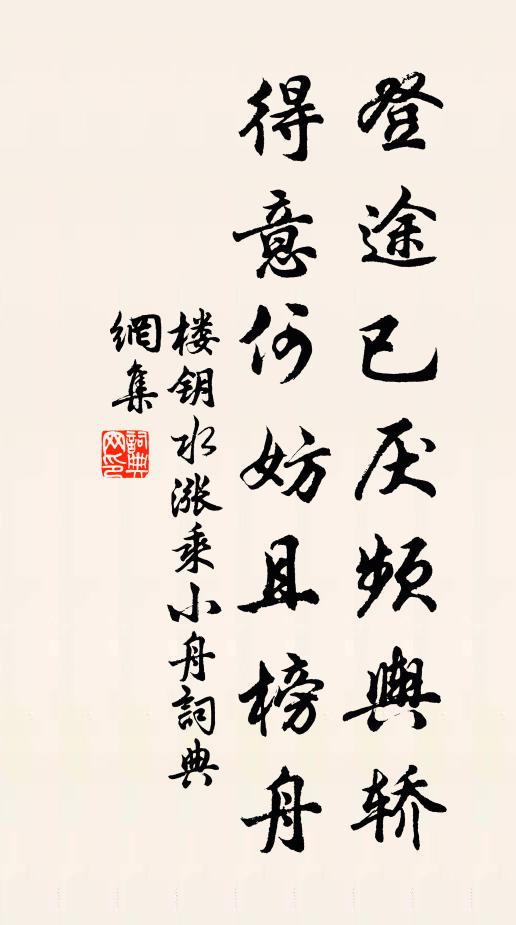 登途已厌频舆轿
得意何妨且榜舟
楼钥水涨乘小舟詞典
網集
詞典网印